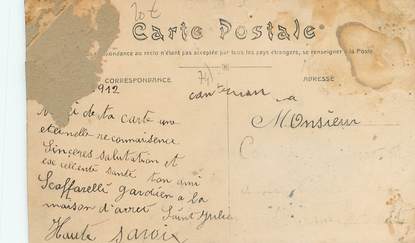 20€
Carte Postale
au recto n'étant pas acceptée par tous les pays étrangers, se renseigner à la Poste
CORRESPONDANCE
ADRESSE
1912
74)
a
Monsieur
de ta carte une
eternelle reconnaisence
Sinceres salutation et
exellente santé ton ami
Scaffarelli gardien a la
maison d'arret Saint Julien
Haute Savoie